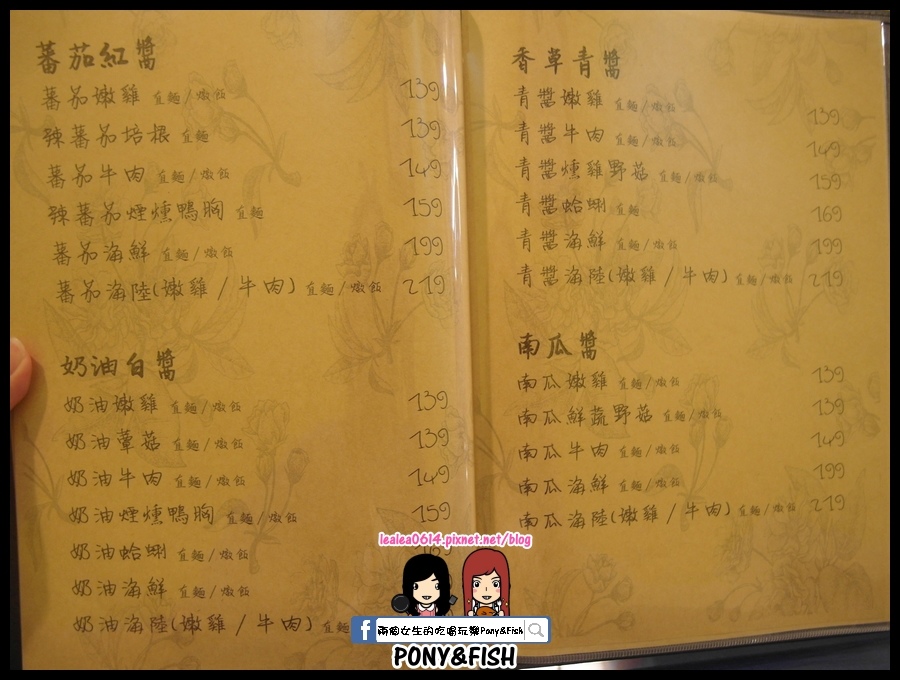 蕃茄紅醬
蕃茄嫩雞 直麵/燉飯 139
辣蕃茄培根 直麵 139
蕃茄牛肉 直麵/燉飯 149
辣蕃茄煙燻鴨胸 直麵 159
蕃茄海鮮 直麵/燉飯 199
蕃茄海陸(嫩雞/牛肉) 直麵/燉飯 219
奶油白醬
奶油嫩雞 直麵/燉飯 139
奶油蕈菇 直麵/燉飯 139
奶油牛肉 直麵/燉飯 149
奶油煙燻鴨胸 直麵/燉飯 159
奶油蛤蜊 直麵/燉飯 169
奶油海鮮 直麵/燉飯
奶油海陸(嫩雞/牛肉) 直麵
香草青醬
青醬嫩雞 直麵/燉飯 139
青醬牛肉 直麵/燉飯 149
青醬燻雞野菇 直麵/燉飯 159
青醬蛤蜊 直麵 169
青醬海鮮 直麵/燉飯 199
青醬海陸(嫩雞/牛肉) 直麵/燉飯 219
南瓜醬
南瓜嫩雞 直麵/燉飯 139
南瓜鮮蔬野菇 直麵/燉飯 139
南瓜牛肉 直麵/燉飯 149
南瓜海鮮 直麵/燉飯 199
南瓜海陸(嫩雞/牛肉) 直麵/燉飯 219
lealea0614.pixnet.net/blog
f 兩個女生的吃喝玩樂Pony&Fish
PONY&FISH